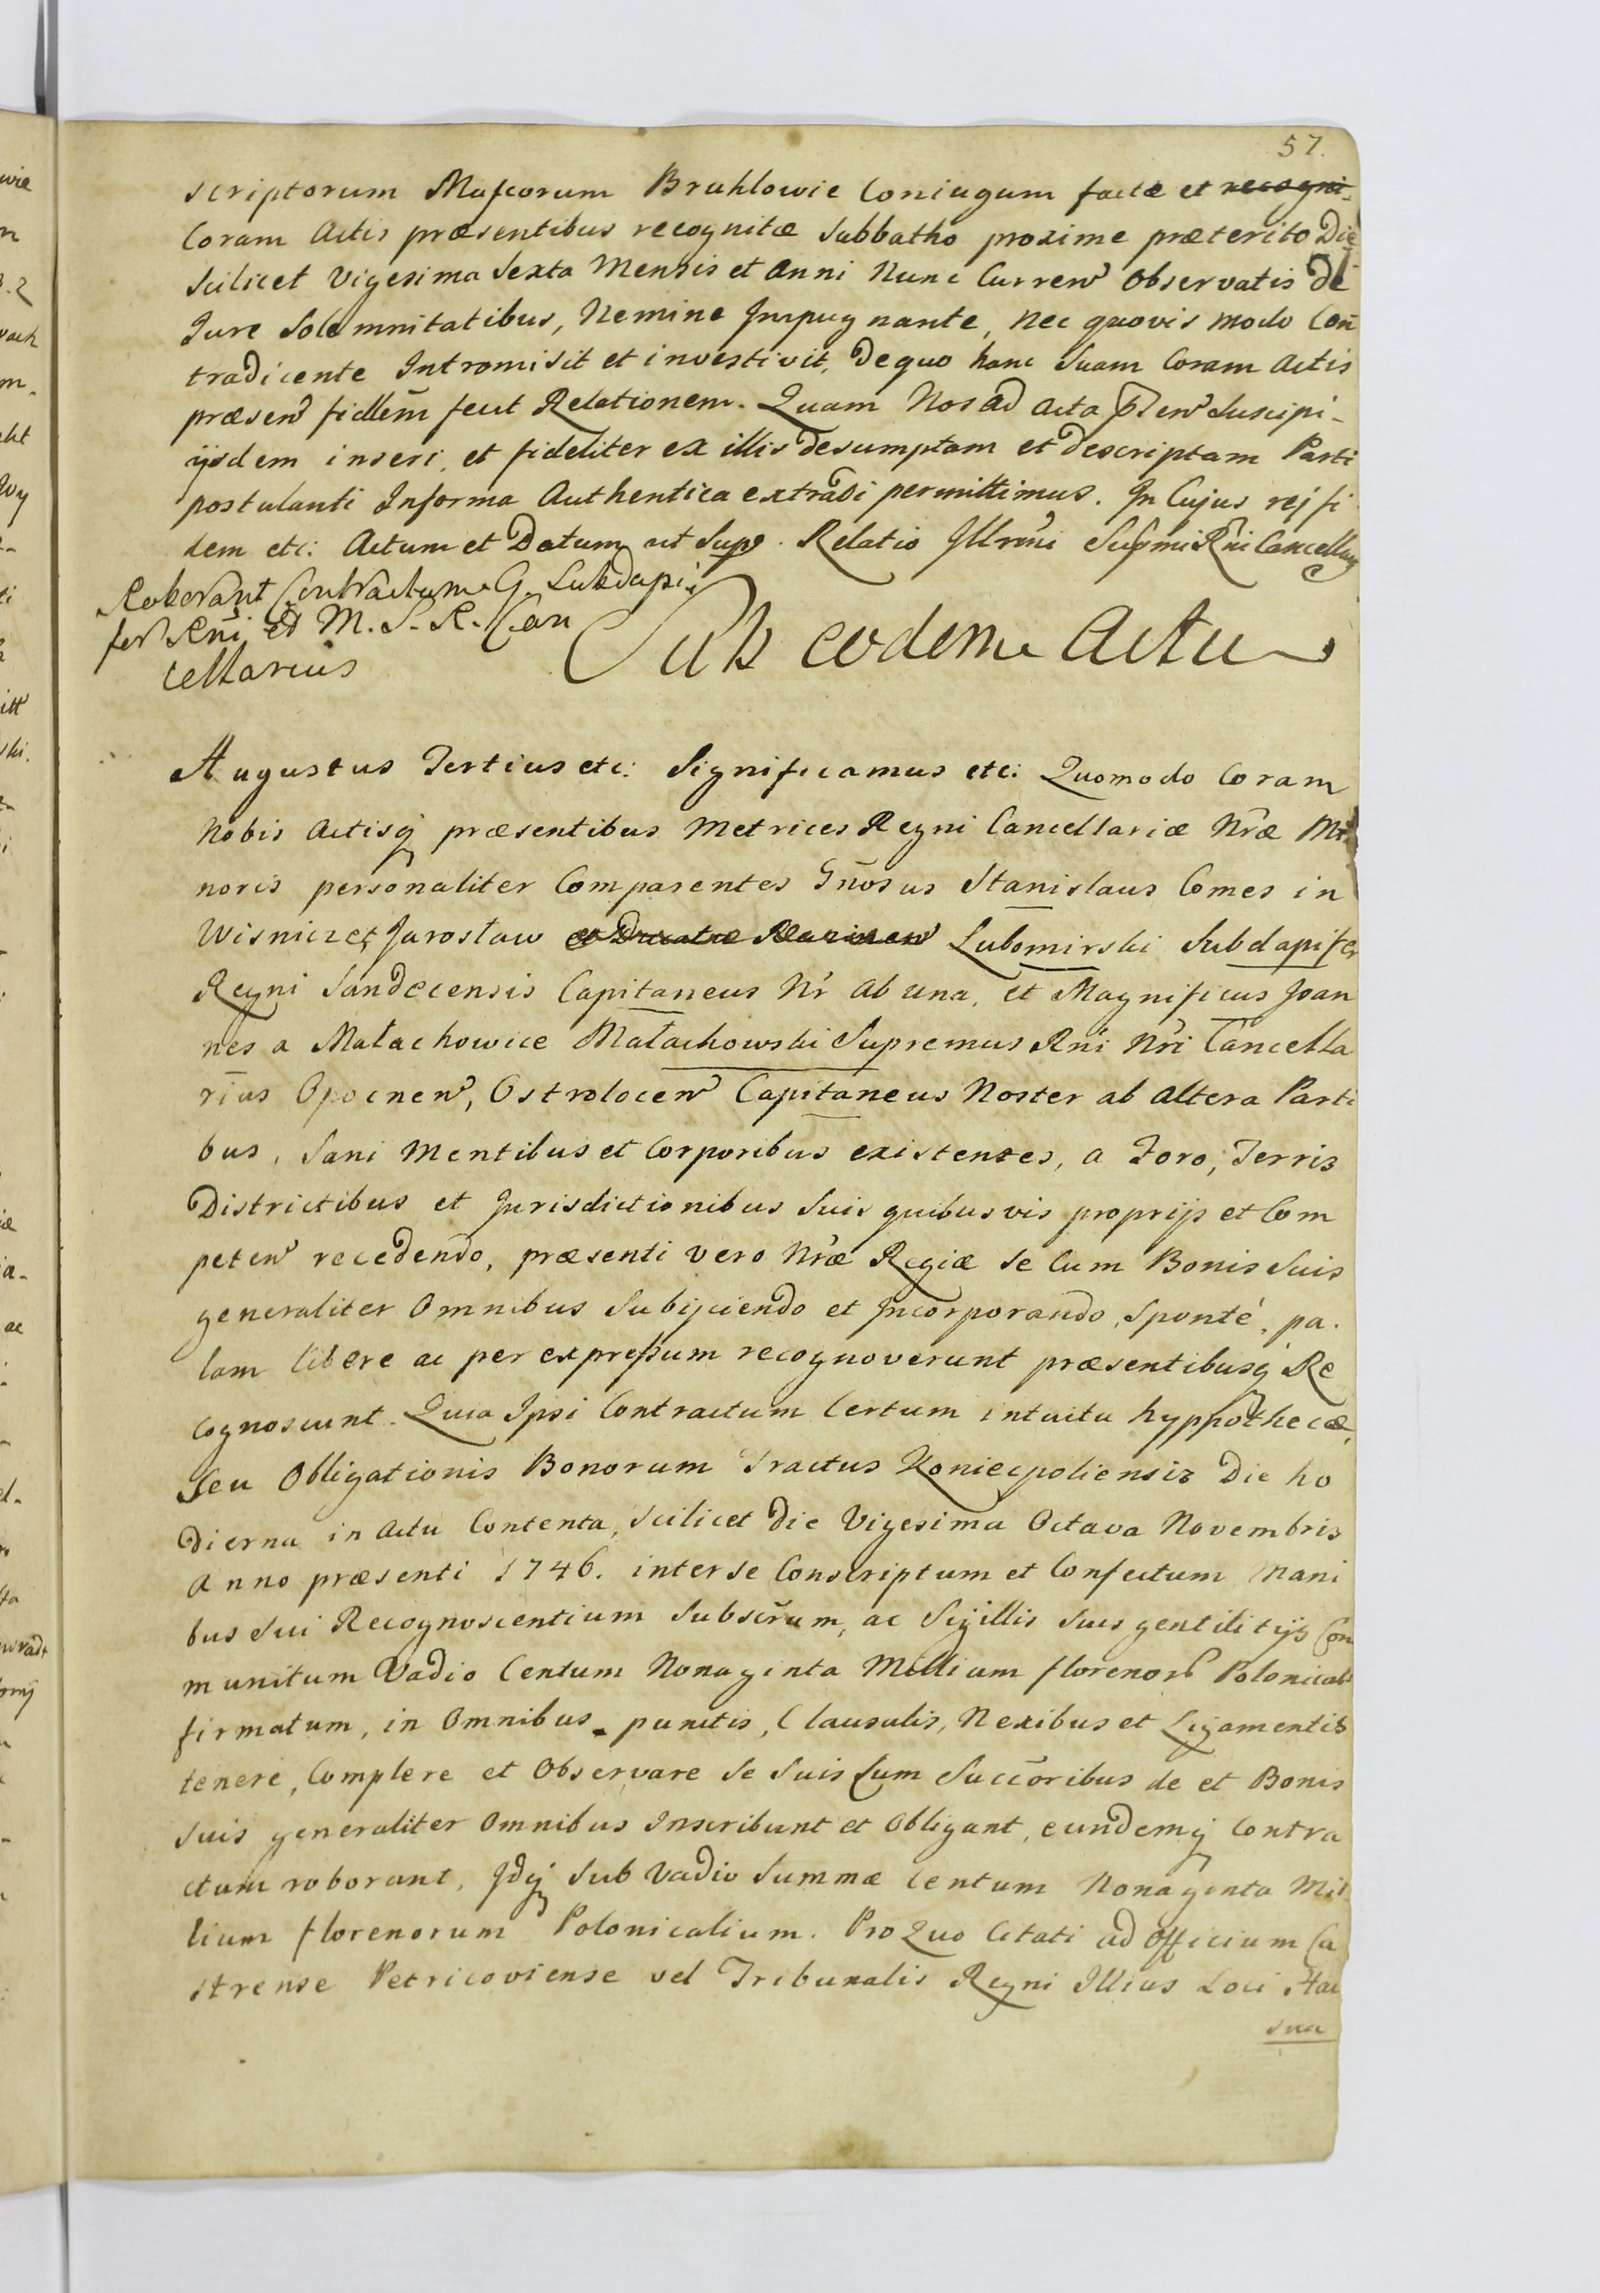 57.
scriptorum Mafcorum Bruhlowie Coniugum factæ et recogni-
Coram Actis præsentibus recognitæ Sabbatho proxime præterito Die
Scilicet Vigesima Sexta Mensis et Anni Nunc Curren Observatis de
Jure Solemnitatibus, Nemine Impugnante, Nec quovis modo Con
tradicente Intromisit et investivit, De quo hanc Suam Coram Actis
præsen fidlem fecit Relationem. Quam Nos ad Acta pñten Suscipi-
ijsdem inseri, et fideliter ex illis desumptam et descriptam Parti
postulanti Informa Authentica extradi permittimus. In Cujus rej fi
dem etc: Actum et Datum ut Sup. Relatio Illrmi Supmi Rni Cancellarij
Roborant Contractum G. Subdapi
fer Rni et M. S. R. Can
cellarius
Sub eodem Actu
Augustus Tertius etc: Significamus etc: Quomodo Coram
Nobis Actisq præsentibus Metrices Regni Cancellariæ Nræ Mi
noris personaliter Comparentes Gnosus Stanislaus Comes in
Wisnicz et Jaroslaw Lubomirski Subdapifer
Regni Sandecensis Capitaneus Nr ab una, et Magnificus Joan
nes a Małachowice Małachowski Supremus Rni Nri Cancella
rius Opocnen, Ostrolocen Capitaneus Noster ab altera Parti
bus, Sani Mentibus et Corporibus existentes, a Foro, Terris
Districtibus et Jurisdictionibus Suis quibusvis proprijs et Com
peten recedendo, præsenti vero Nræ Regiæ Se Cum Bonis Suis
generaliter Omnibus Subijciendo et Incorporando, Sponté, pa-
lam libere ac per expressum recognoverunt præsentibusq Re
cognoscunt. Quia Ipsi Contractum Certum intuitu hyppothecæ,
Seu Obligationis Bonorum Tractus Koniecpoliensis Die ho
dierna in Actu Contenta, Scilicet Die Vigesima Octava Novembris
Anno præsenti 1746. inter Se Conscriptum et Confectum Mani
bus Sui Recognoscentium Subscrum, ac Sigillis Suis gentilitijs Com
munitum Vadio Centum Nonaginta Millium florenor Polonical
firmatum, in Omnibus punctis, Clausulis, Nexibus et Ligamentis
tenere, Complere et Observare Se Suis Cum Succoribus de et Bonis
Suis generaliter Omnibus Inscribunt et Obligant, eundemq Contra
ctum roborant, Idq Sub Vadio Summæ Centum Nonaginta Mil
lium florenorum Polonicalium. Pro Quo Citati ad Officium Ca
strense Petricoviense vel Tribunalis Regni Illius Loci Hac